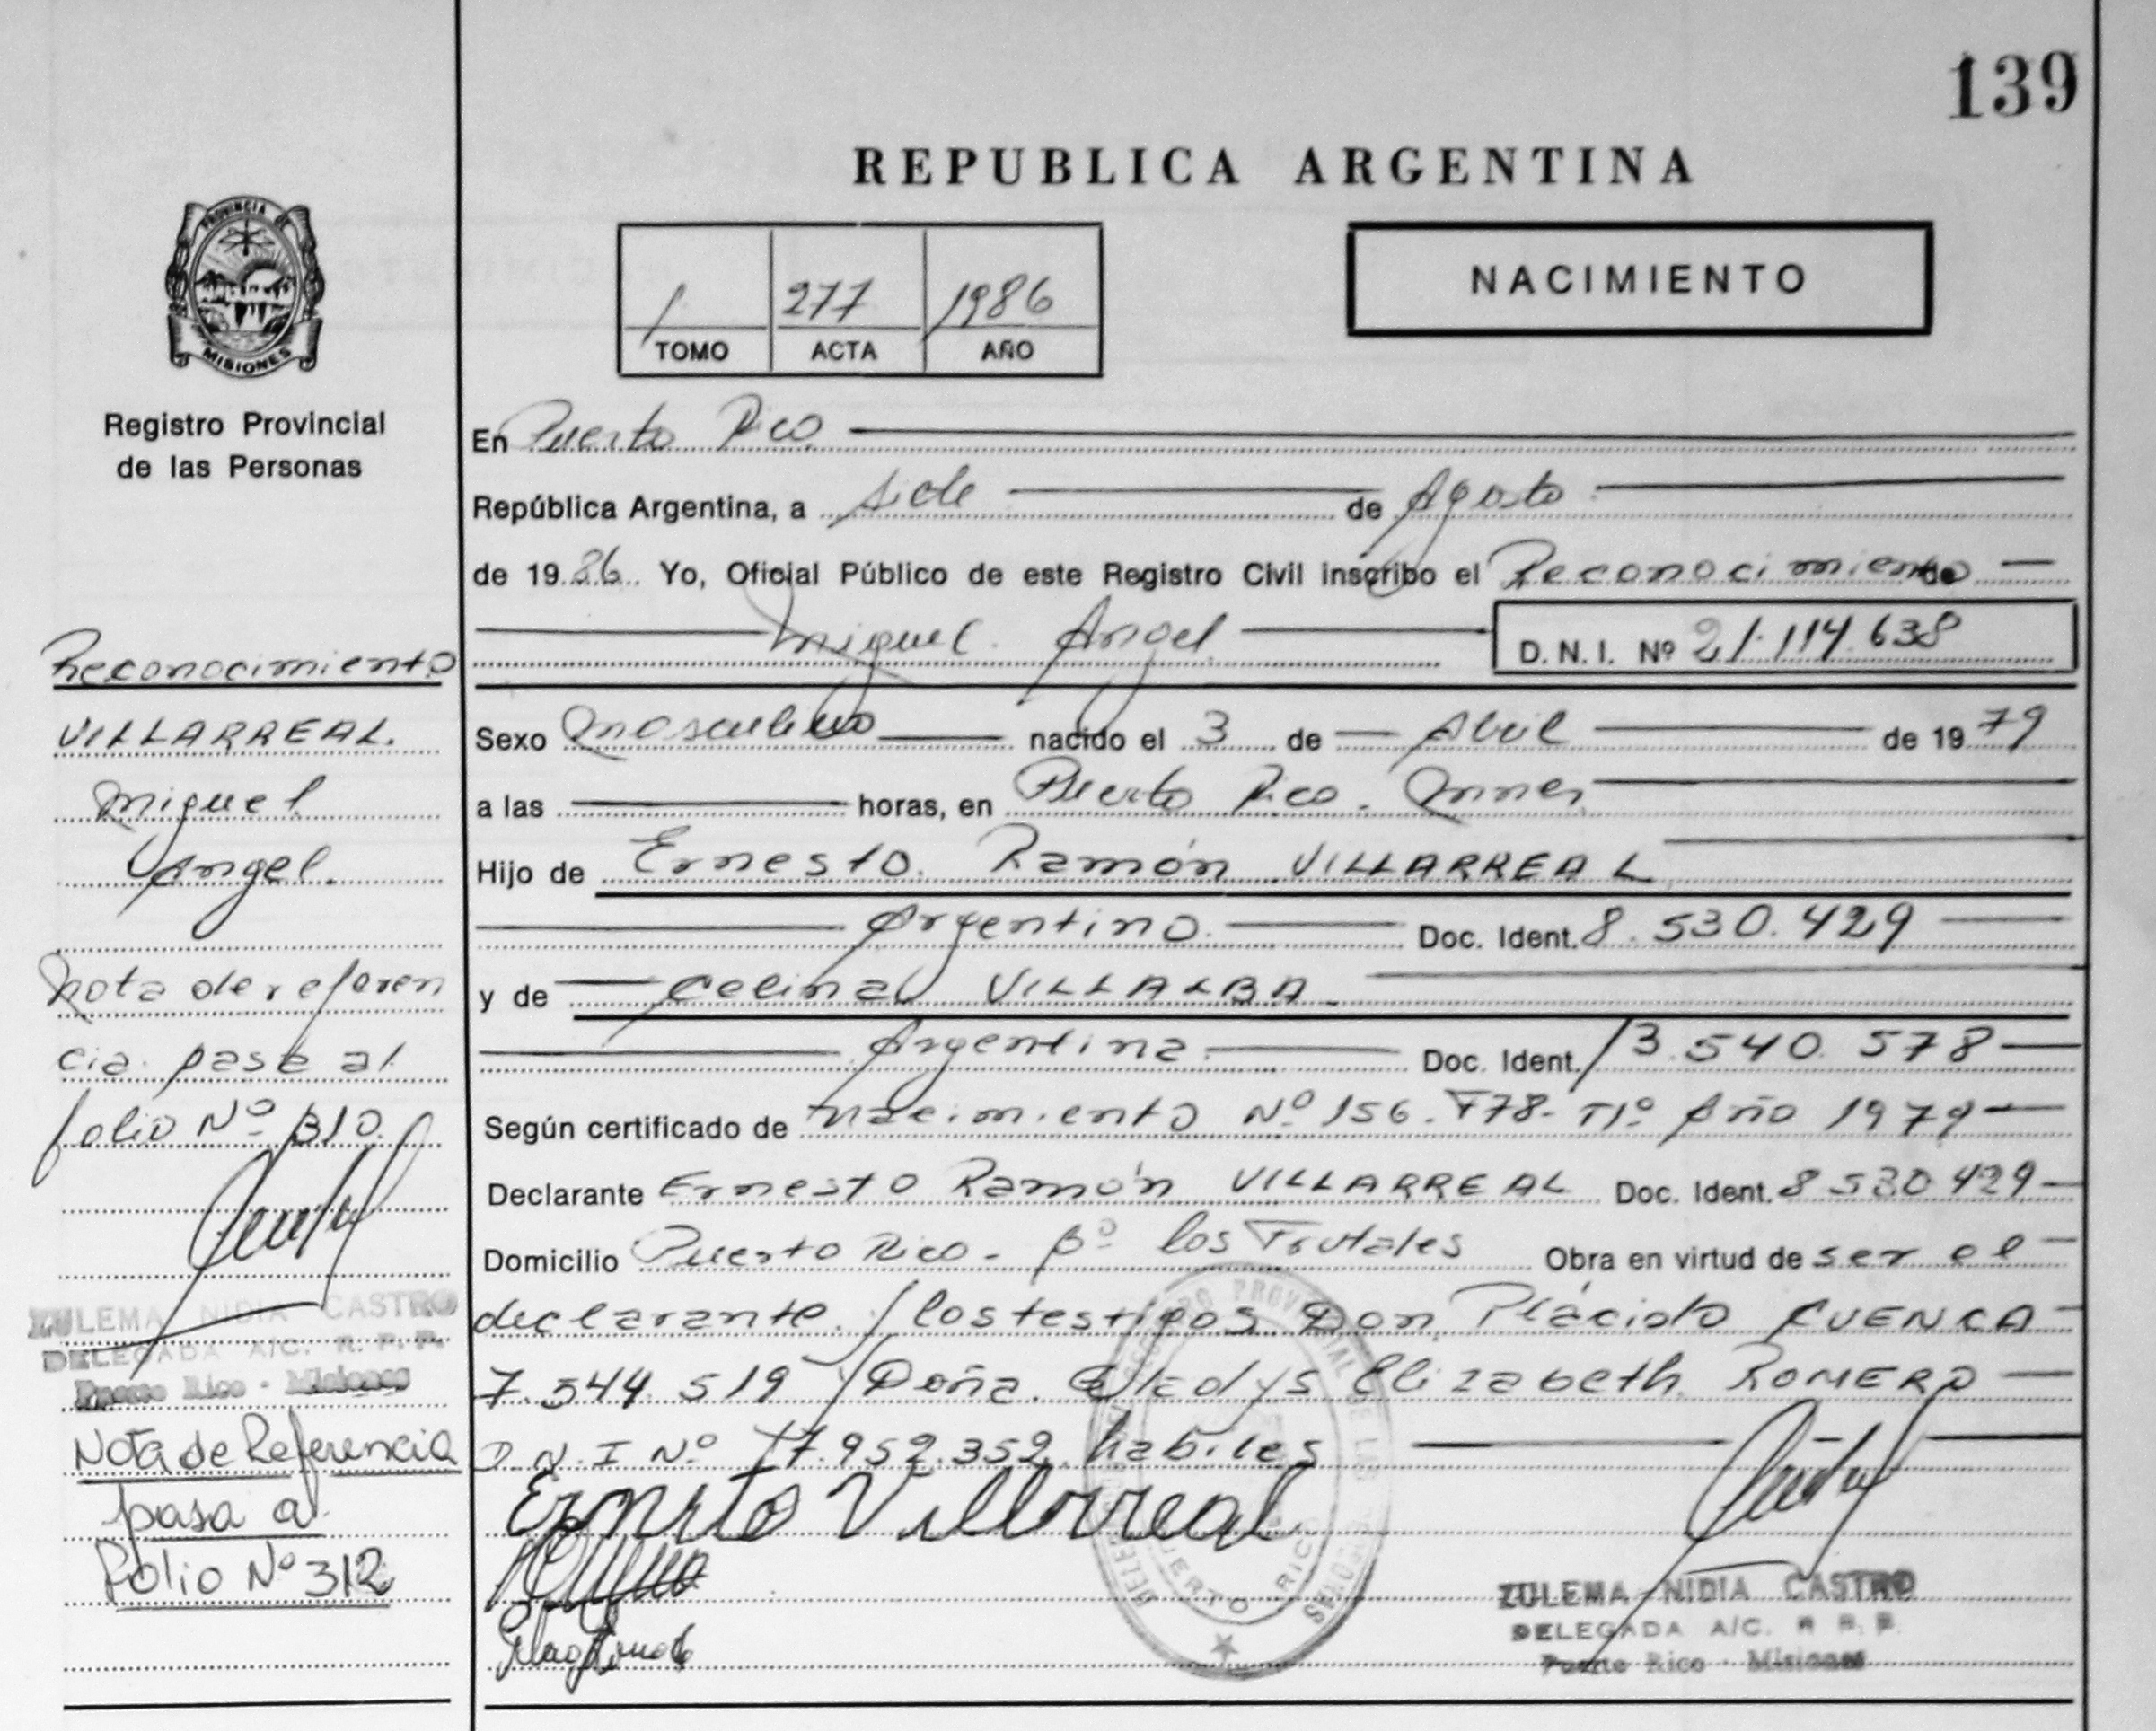 139
REPUBLICA ARGENTINA
PROVINCIA DE
MISIONES
1 277 1986
TOMO ACTA AÑO
NACIMIENTO
Registro Provincial
de las Personas
En Puerto Rico
República Argentina, a siete de Agosto
de 1986 Yo, Oficial Público de este Registro Civil inscribo el Reconocimiento de
Miguel Angel D. N. I. Nº 21.114.638
Sexo masculino nacido el 3 de Abril de 1979
a las horas, en Puerto Rico. Mnes.
Hijo de Ernesto Ramón VILLARREAL
Argentino. Doc. Ident. 8.530.429
y de Celina VILLALBA
Argentina. Doc. Ident. 13.540.578
Según certificado de nacimiento Nº 156. F78- T1º Año 1979
Declarante Ernesto Ramón VILLARREAL Doc. Ident. 8 530 429
Domicilio Puerto Rico - Bº los Frutales Obra en virtud de ser el
declarante. / los testigos Don Plácido CUENCA
7.544.519 / Doña Gladys Elizabeth ROMERO
D.N.I Nº 17.952.352 habiles
Ernesto Villarreal
ZULEMA NIDIA CASTRO
DELEGADA A/C. R. P. P.
Puerto Rico - Misiones
PUERTO RICO
Reconocimiento
VILLARREAL.
Miguel
Angel.
Nota de referen
cia. pasa al
folio Nº 310.
ZULEMA NIDIA CASTRO
DELEGADA A/C. R. P. P.
Puerto Rico - Misiones
Nota de Referencia
pasa a
Folio Nº 312